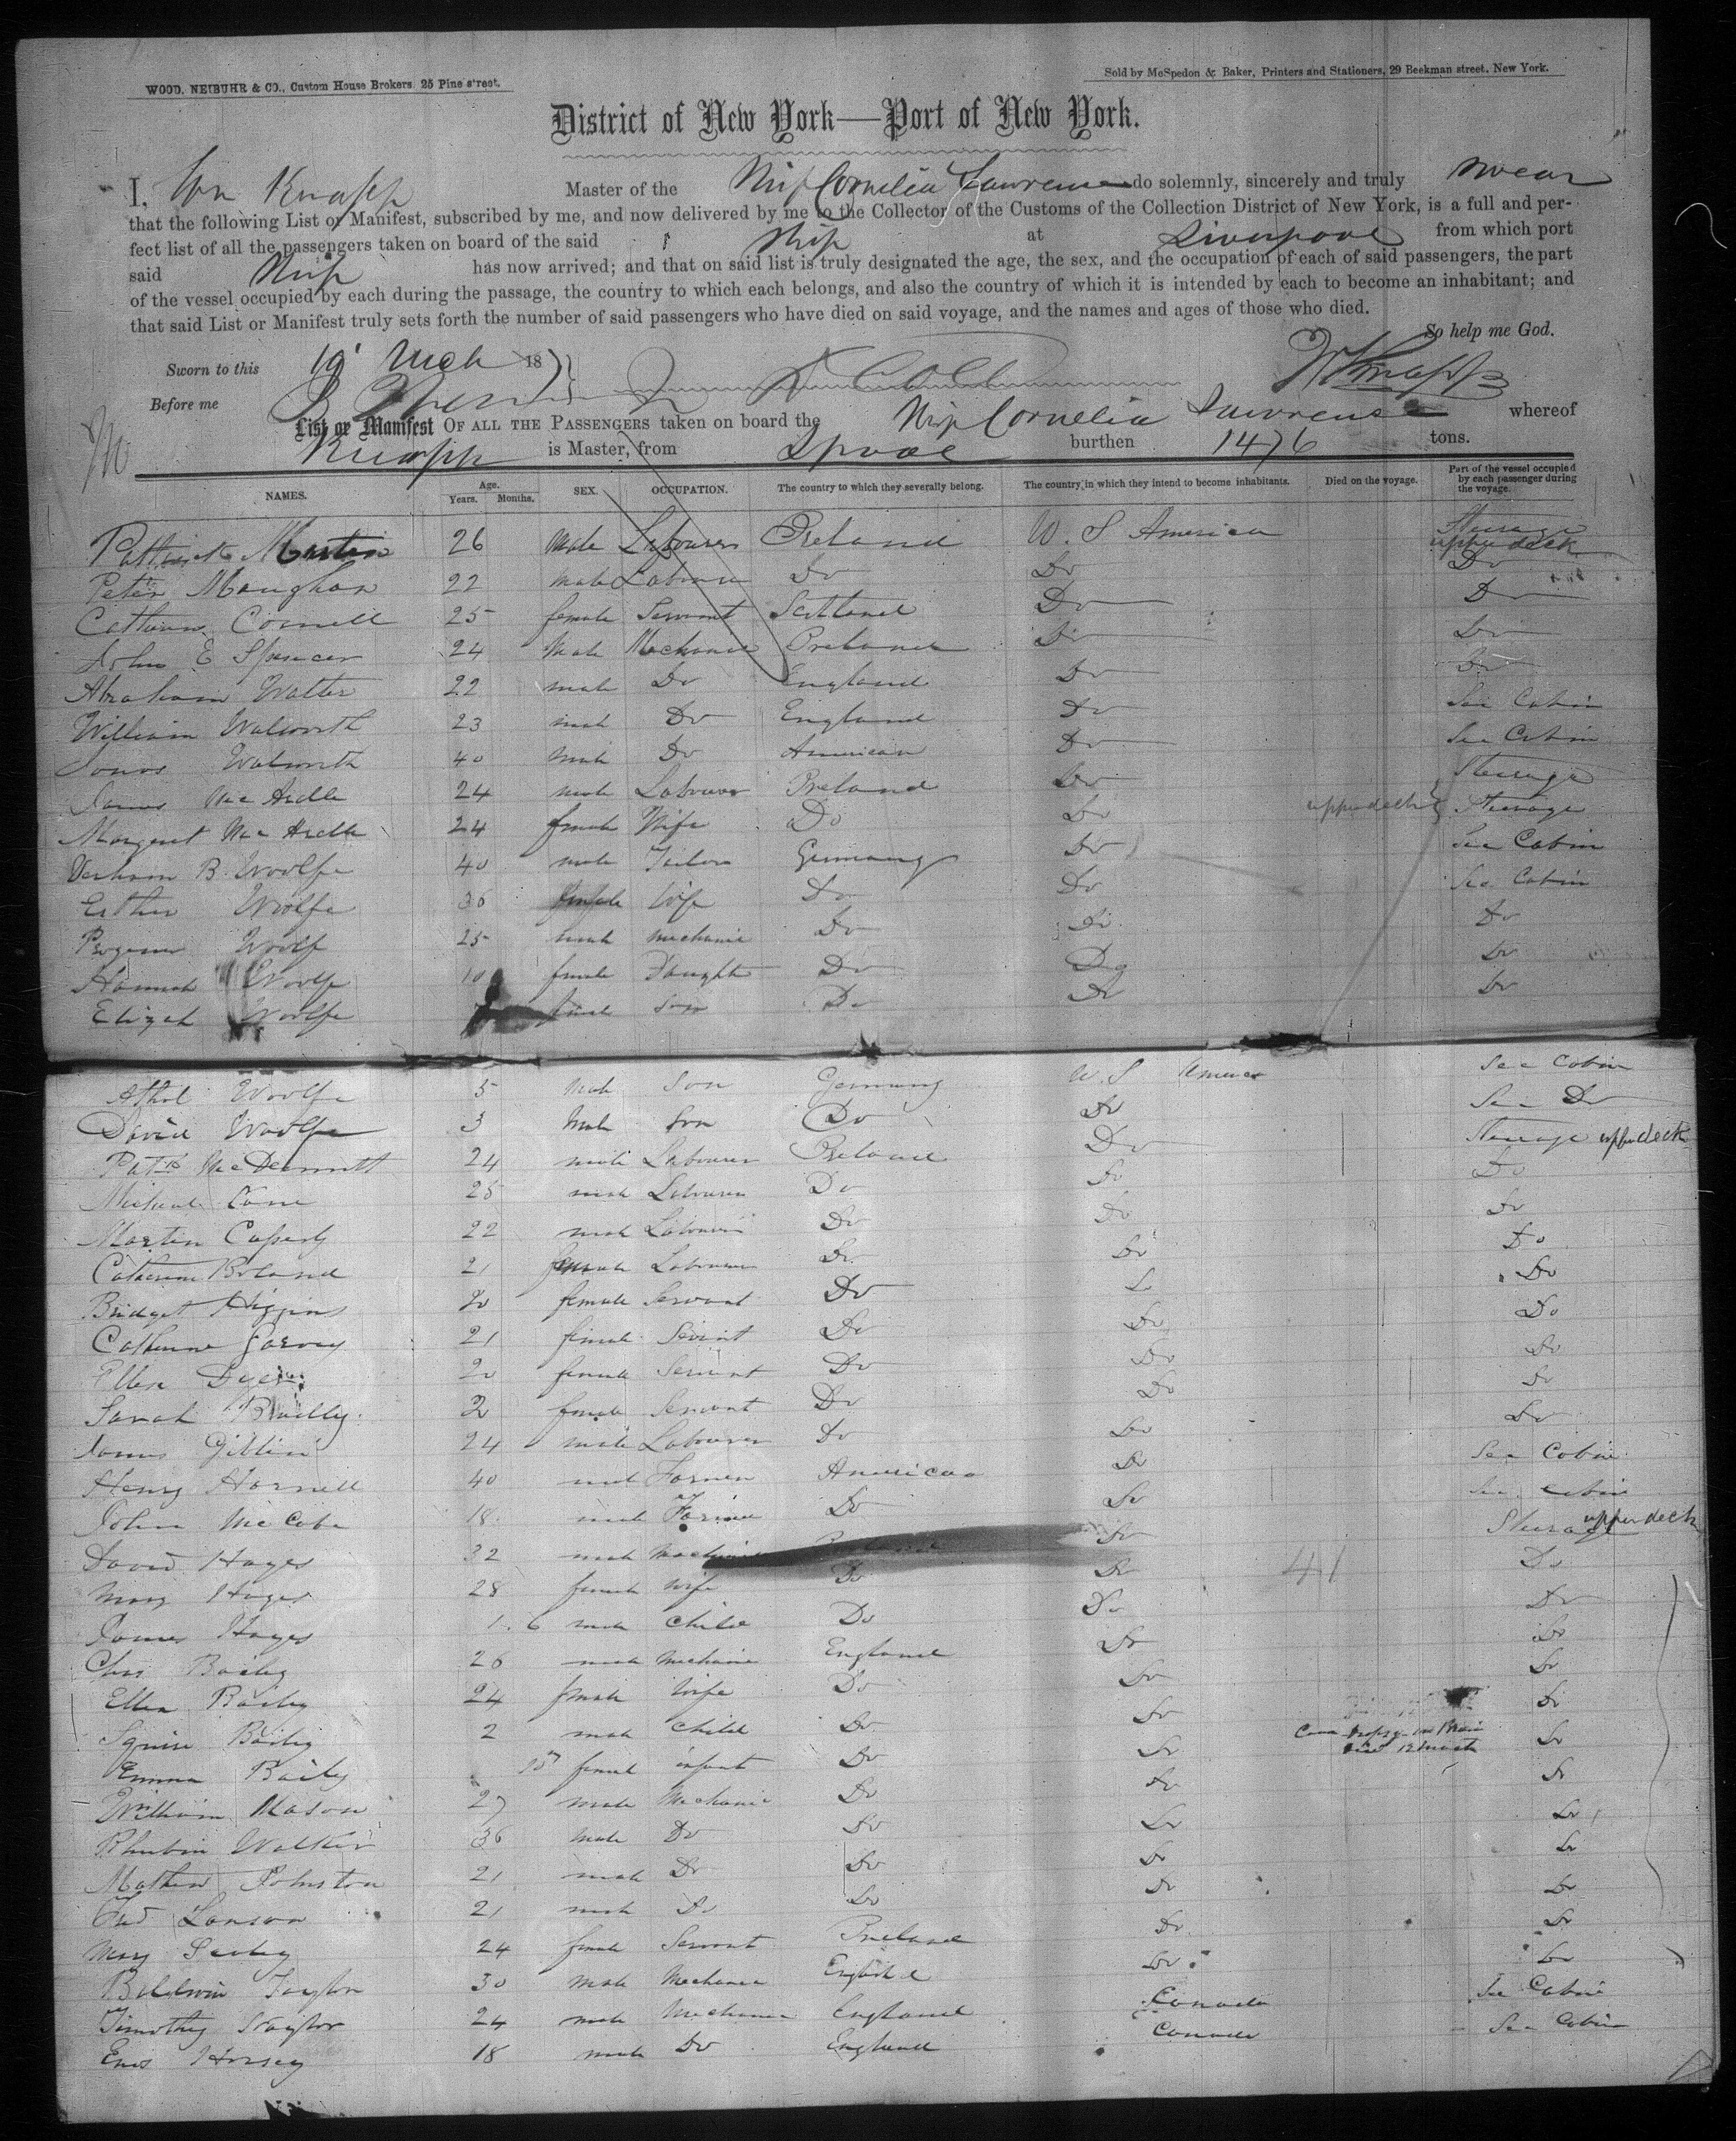 WOOD, NEIBUHR & CO., Custom House Brokers, 25 Pine street.
Sold by McSpedon & Baker, Printers and Stationers, 29 Beekman street, New York.
District of New York—Port of New York.
I, Wm Knapp Master of the Ship Cornelia Lawrence do solemnly, sincerely and truly swear
that the following List or Manifest, subscribed by me, and now delivered by me to the Collector of the Customs of the Collection District of New York, is a full and per-
fect list of all the passengers taken on board of the said Ship at Liverpool from which port
said Ship has now arrived; and that on said list is truly designated the age, the sex, and the occupation of each of said passengers, the part
of the vessel occupied by each during the passage, the country to which each belongs, and also the country of which it is intended by each to become an inhabitant; and
that said List or Manifest truly sets forth the number of said passengers who have died on said voyage, and the names and ages of those who died.
So help me God.
Sworn to this 19 Mch 18 W Knapp
Before me
List or Manifest OF ALL THE PASSENGERS taken on board the Ship Cornelia Lawrence whereof
Knapp is Master, from Lpool burthen 1476 tons.
NAMES. Age. Years. Months. SEX. OCCUPATION. The country to which they severally belong. The country in which they intend to become inhabitants. Died on the voyage. Part of the vessel occupied by each passenger during the voyage.
Pattrick Martin 26 Male Labourer Ireland U. S America Steerage upper deck
Peter Maughan 22 male Labourer Do Do Do
Catherine Connell 25 female Servant Scotland Do Do
John E Spencer 24 Male Mechanic Ireland Do Do
Abraham Walter 22 male Do England Do Do
William Walworth 23 male Do England Do Sec Cabin
Walworth 40 male Do American Do Sec Cabin
James McArdle 24 male Labourer Ireland Do Steerage
Margaret McArdle 24 female Wife Do Do upper deck Steerage
B. Woolfe 40 male Tailor Germany Do Sec Cabin
Esther Woolfe 36 female Wife Do Do Sec Cabin
Woolf 25 male mechanic Do Do Do
Hannah Woolfe 10 female Daught Do Do Do
Elizah Woolfe son Do Do Do
Woolfe 5 Male Son Germany U. S America Sec Cabin
David Woolfe 3 Male Son Do Do Sec Do
Patk McDermott 24 male Labourer Ireland Do Steerage upper deck
Michael Cane 25 male Labourer Do Do Do
Martin 22 male Labourer Do Do Do
Catherine Boland 21 female Labourer Do Do Do
Bridget Higgins 20 female Servant Do Do Do
Catherine Garvey 21 female Servant Do Do Do
Ellen Dyer 20 female Servant Do Do Do
Sarah Reilly 2 female Servant Do Do Do
James 24 male Labourer Do Do Do
Henry Harnell 40 male Farmer American Do Sec Cabin
John McCabe 18 male Farmer Do Do Sec Cabin
David Hayes 32 male Mechanic Ireland Do Steerage upper deck
Mary Hayes 28 female wife Do Do 41 Do
James Hayes 1. 6 male child Do Do Do
Chas Bailey 26 male Mechanic England Do Do
Ellen Bailey 24 female Wife Do Do Do
Squire Bailey 2 male child Do Do Do
Emma Bailey female infant Do Do Dropsy on Brain Do
William Mason 27 male Mechanic Do Do Do
Rhubin Walker 36 Male Do Do Do Do
Mathew Johnston 21 male Do Do Do Do
Fred Lanson 21 male Do Do Do Do
Mary 24 female Servant Ireland Do Do
Baldwin Taylor 30 male Mechanic England Do Do
Timothy Naylor 24 male Mechanic England Canada Sec Cabin
Enos Horsey 18 male Do England Canada Sec Cabin